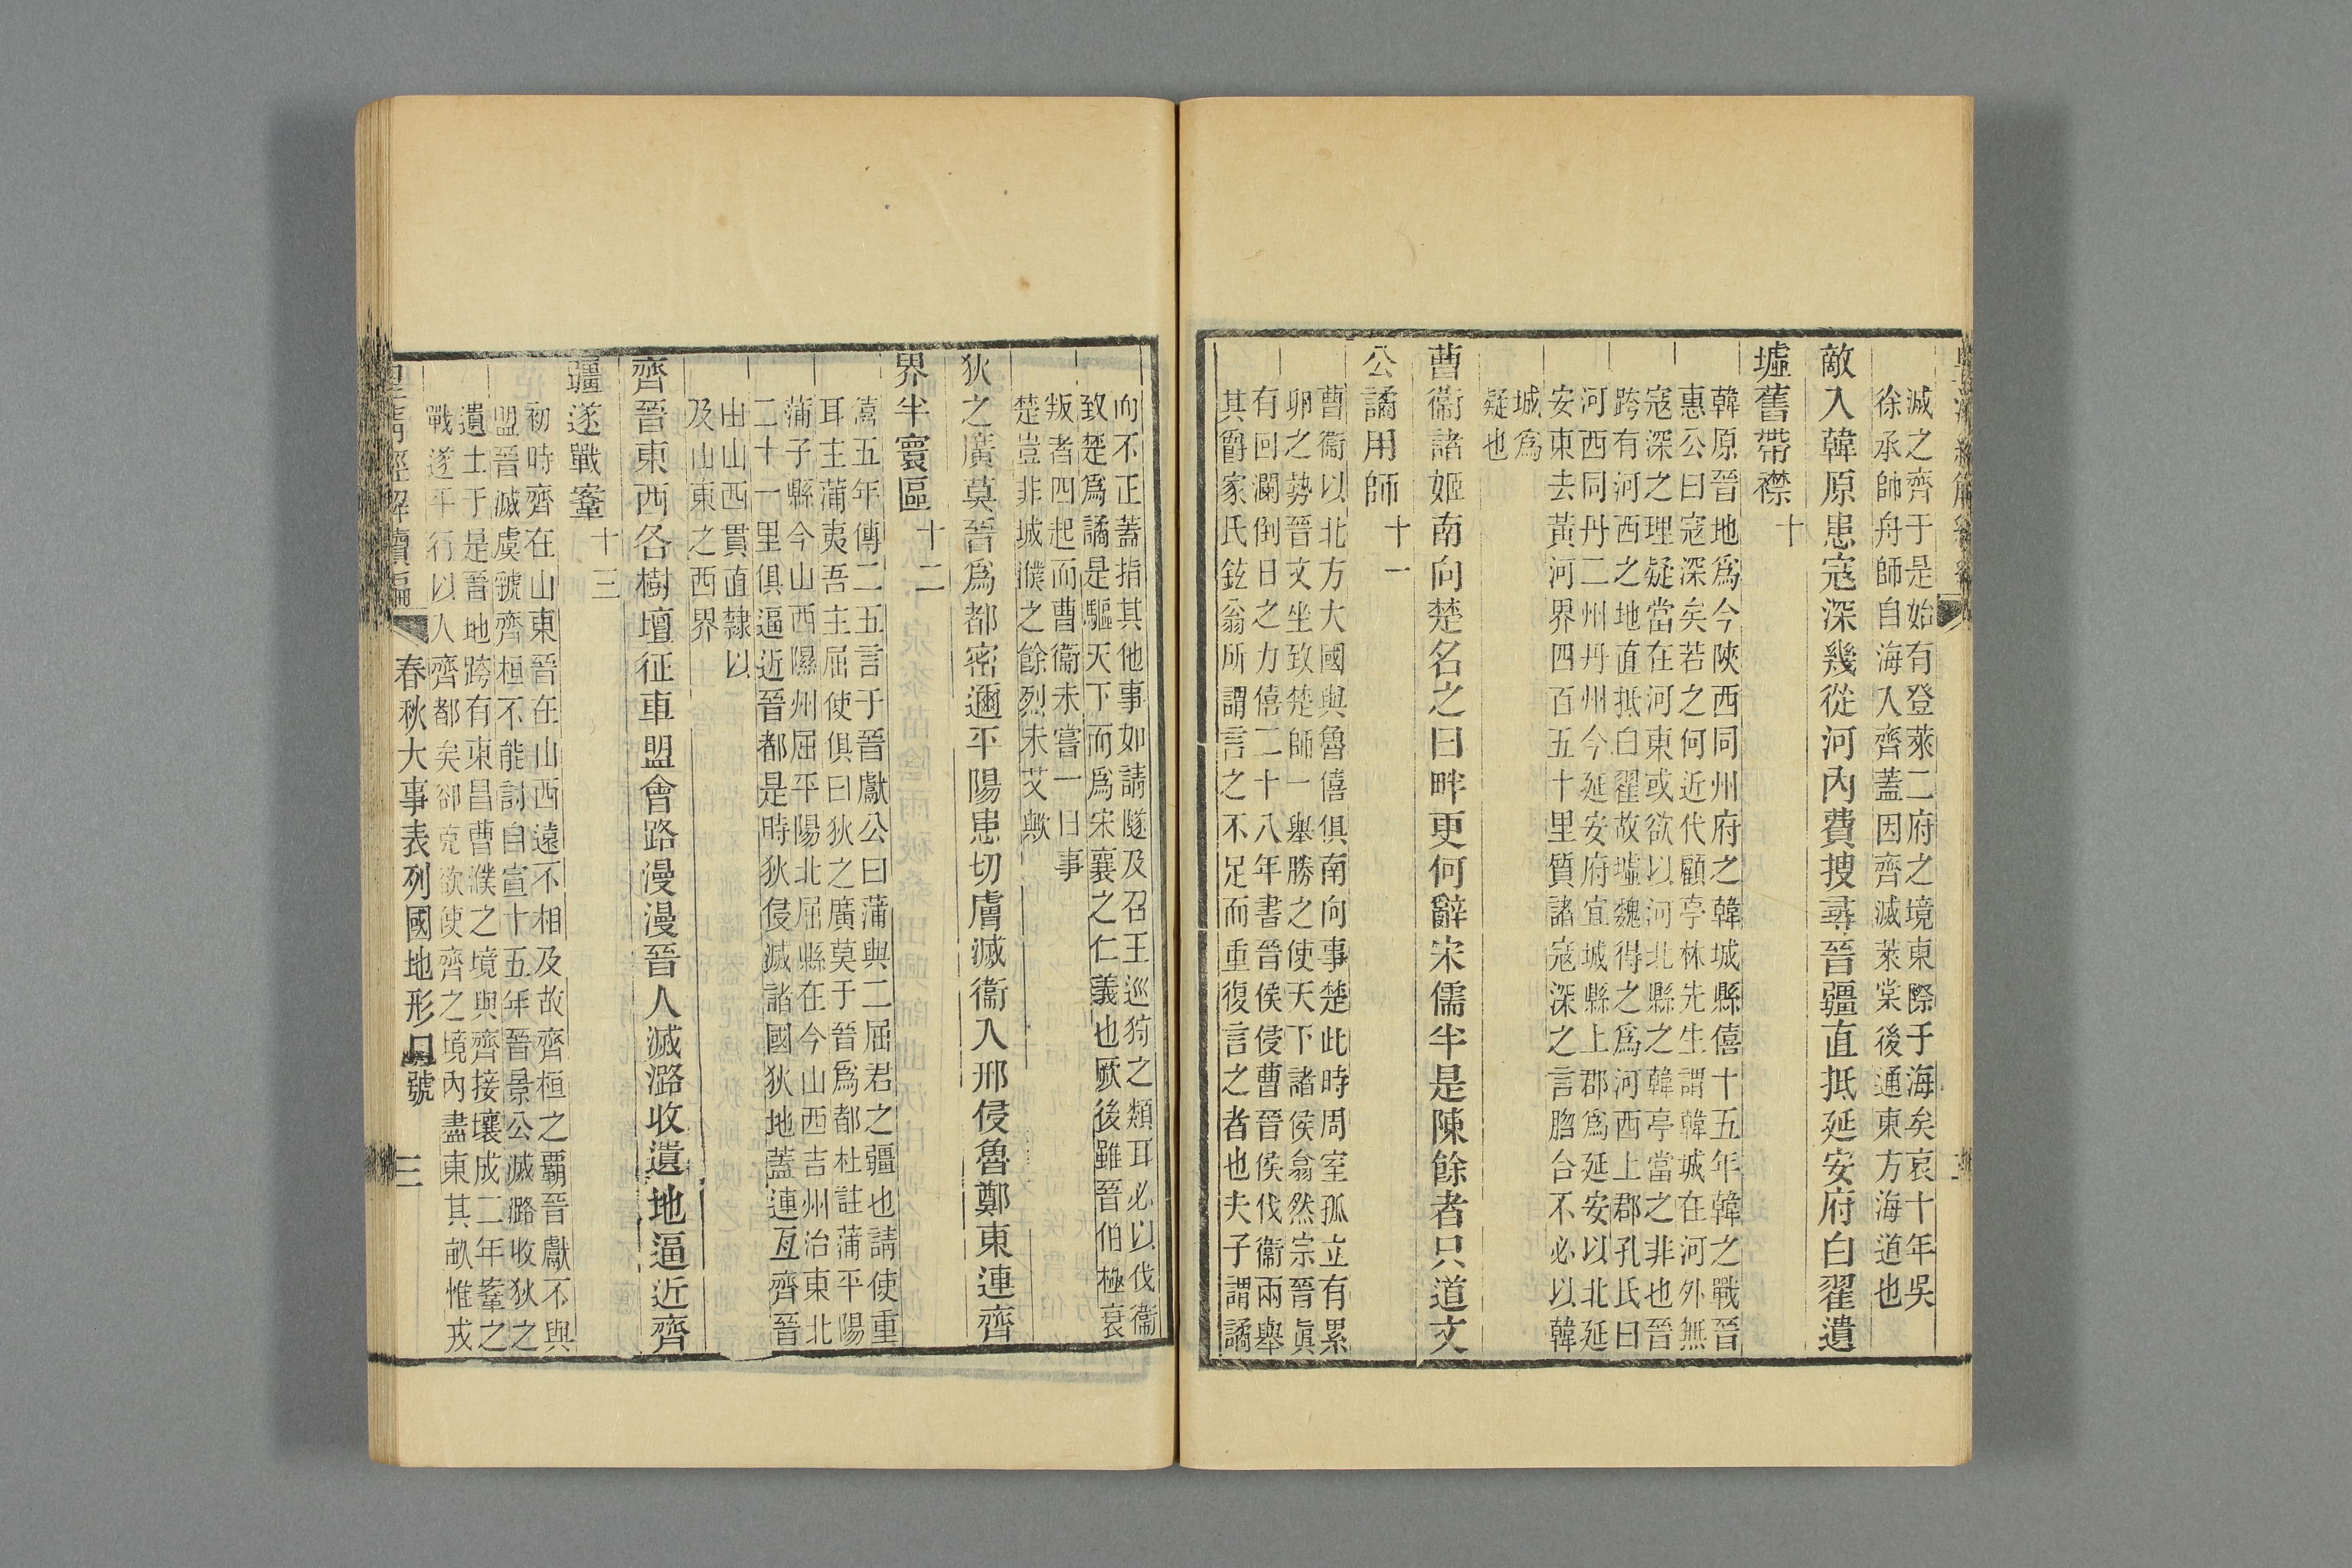 滅之齊于是始有登萊二府之境東際于海矣哀十年吳
徐承帥舟師自海入齊蓋因齊滅萊棠後通東方海道也
敵入韓原患寇深幾從河內費搜尋晉疆直抵延安府白翟遺
墟舊帶襟十
韓原晉地爲今陝西同州府之韓城縣僖十五年韓之戰晉
惠公曰寇深矣若之何近代顧亭林先生謂韓城在河外無
寇深之理疑當在河東或欲以河北縣之韓亭當之非也晉
跨有河西之地直抵白翟故墟魏得之爲河西上郡孔氏曰
河西同丹二州丹州今延安府宜城縣上郡爲延安以北延
安東去黃河界四百五十里質諸寇深之言脗合不必以韓
城爲
疑也
曹衞諸姬南向楚名之曰畔更何辭宋儒半是陳餘者只道文
公譎用師十一
曹衞以北方大國與魯僖俱南向事楚此時周室孤立有累
卵之勢晉文坐致楚師一舉勝之使天下諸侯翕然宗晉眞
有回瀾倒日之力僖二十八年書晉侯侵曹晉侯伐衞兩舉
其爵家氏鉉翁所謂言之不足而重復言之者也夫子謂譎
向不正蓋指其他事如請隧及召王巡狩之類耳必以伐衞
致楚爲譎是驅天下而爲宋襄之仁義也厥後雖晉伯極衰
叛者四起而曹衞未嘗一日事
楚豈非城濮之餘烈未艾歟
狄之廣莫晉爲都密邇平陽患切膚滅衞入邢侵魯鄭東連齊
界半寰區十二
僖五年傳二五言于晉獻公曰蒲與二屈君之疆也請使重
耳主蒲夷吾主屈使俱曰狄之廣莫于晉爲都杜註蒲平陽
蒲子縣今山西隰州屈平陽北屈縣在今山西吉州治東北
二十一里俱逼近晉都是時狄侵滅諸國狄地蓋連亙齊晉
由山西貫直隸以
及山東之西界
齊晉東西各樹壇征車盟會路漫漫晉人滅潞收遺地逼近齊
疆遂戰鞌十三
初時齊在山東晉在山西遠不相及故齊桓之霸晉獻不與
盟晉滅虞虢齊桓不能討自宣十五年晉景公滅潞收狄之
遺土于是晉地跨有東昌曹濮之境與齊接壤成二年鞌之
戰遂平行以入齊都矣卻克欲使齊之境內盡東其畝惟戎
皇淸經解續編 春秋大事表列國地形口號 三